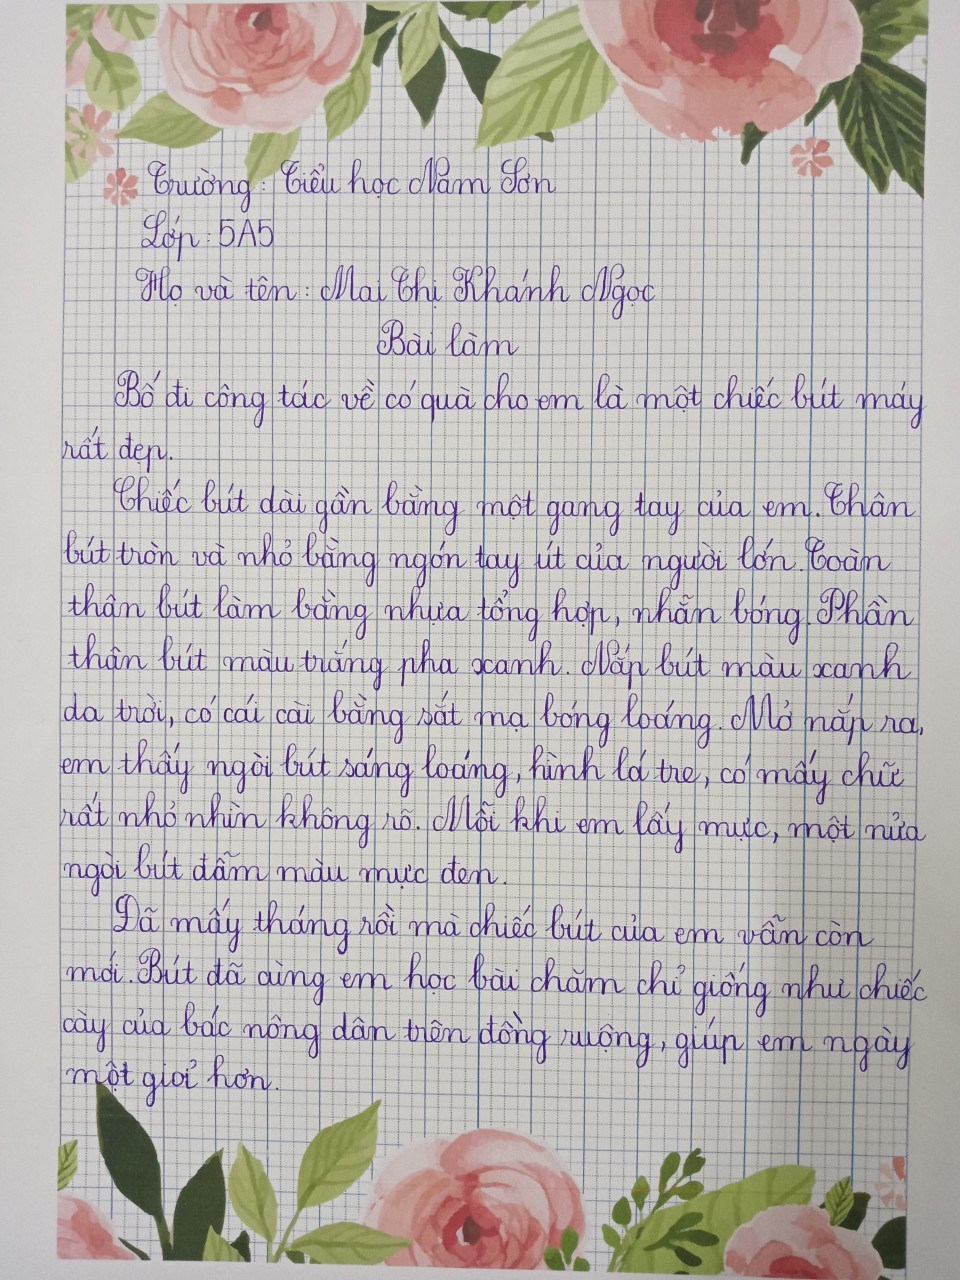 Trường: Tiểu học Nam Sơn
Lớp: 5A5
Họ và tên: Mai Thị Khánh Ngọc
Bài làm
Bố đi công tác về có quà cho em là một chiếc bút máy
rất đẹp.
Chiếc bút dài gần bằng một gang tay của em. Thân
bút tròn và nhỏ bằng ngón tay út của người lớn. Toàn
thân bút làm bằng nhựa tổng hợp, nhẵn bóng. Phần
thân bút màu trắng pha xanh. Nắp bút màu xanh
da trời, có cái cài bằng sắt mạ bóng loáng. Mở nắp ra,
em thấy ngòi bút sáng loáng, hình lá tre, có mấy chữ
rất nhỏ nhìn không rõ. Mỗi khi em lấy mực, một nửa
ngòi bút đẫm màu mực đen.
Đã mấy tháng rồi mà chiếc bút của em vẫn còn
mới. Bút đã cùng em học bài chăm chỉ giống như chiếc
cày của bác nông dân trên đồng ruộng, giúp em ngày
một giỏi hơn.